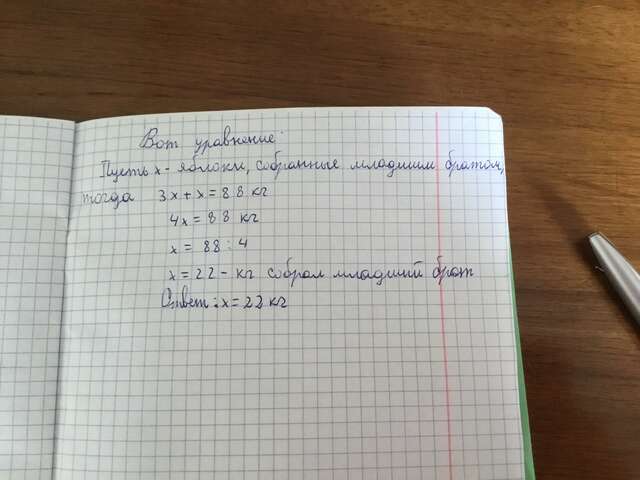 Вот уравнение:
Пусть x - яблоки, собранные младшим братом,
тогда 3x + x = 88 кг
4x = 88 кг
x = 88 : 4
x = 22 - кг собрал младший брат
Ответ: x = 22 кг